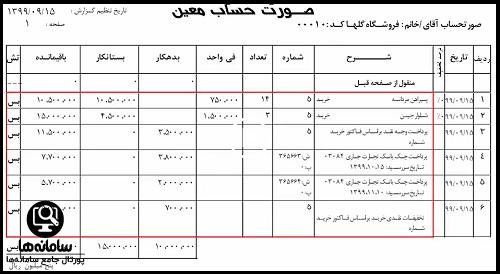 صورت حساب معین
تاریخ تنظیم گزارش : ۱۳۹۹/۰۹/۱۵
صفحه : ۱
صورتحساب آقای/خانم: فروشگاه گلها کد : ۰۰۰۱۰
ردیف تاریخ درصد تخفیف شــرح شماره تعداد فی واحد بدهکار بستانکار باقیمانده تش
منقول از صفحه قبل
۱ ۹۹/۰۹/۱۵ ٪۰ پیراهن مردانه خرید ۵ ۱۴ ۷۵۰,۰۰۰ ۱۰,۵۰۰,۰۰۰ ۱۰,۵۰۰,۰۰۰ بس
۲ ۹۹/۰۹/۱۵ ٪۰ شلوار جین خرید ۵ ۳ ۱,۵۰۰,۰۰۰ ۴,۵۰۰,۰۰۰ ۱۵,۰۰۰,۰۰۰ بس
۳ ۹۹/۰۹/۱۵ پرداخت وجه نقد براساس فاکتور خرید ۵ ۳,۵۰۰,۰۰۰ ۱۱,۵۰۰,۰۰۰ بس
شماره
۴ ۹۹/۰۹/۱۵ پرداخت چک بانک تجارت جاری ۰۳۰۸۴ ش:۳۶۵۶۶۳ ۳,۸۰۰,۰۰۰ ۷,۷۰۰,۰۰۰ بس
تاریخ سررسید: ۱۳۹۹,۱۰,۱۵ پ:۰
۵ ۹۹/۰۹/۱۵ پرداخت چک بانک تجارت جاری ۰۳۰۸۴ ش:۳۶۵۶۶۴ ۲,۰۰۰,۰۰۰ ۵,۷۰۰,۰۰۰ بس
تاریخ سررسید: ۱۳۹۹,۱۱,۱۰ پ:۰
۶ ۹۹/۰۹/۱۵ تخفیفات نقدی خرید براساس فاکتور خرید ۵ ۷۰۰,۰۰۰ بس
شماره
۱۰,۰۰۰,۰۰۰ ۱۵,۰۰۰,۰۰۰ بس
پنج میلیون ریال
سامانه‌ها
پورتال جامع سامانه‌ها